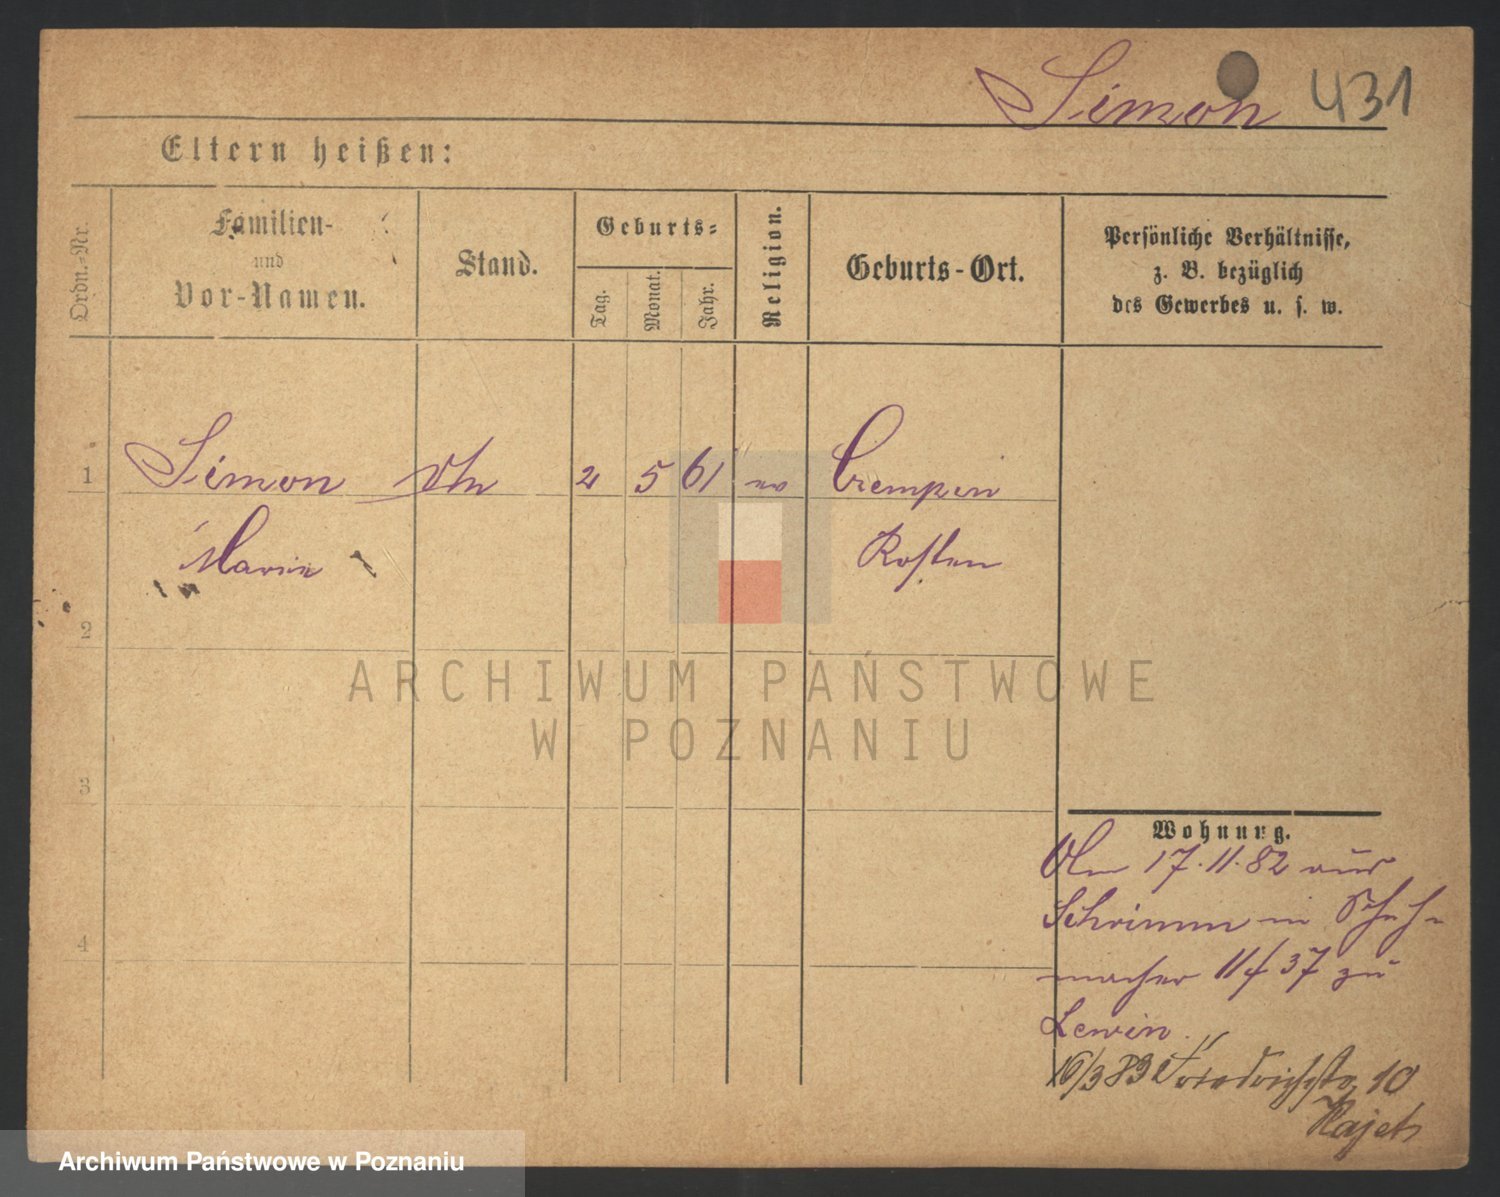 Simon 431
Eltern heißen:
Ordn.-Nr.
Familien-
und
Vor-Namen.
Stand.
Geburts-
Tag.
Monat.
Jahr.
Religion.
Geburts-Ort.
Persönliche Verhältnisse,
z. B. bezüglich
des Gewerbes u. s. w.
1 Simon 2 5 61 ev Czempin
Marie Kosten
2
ARCHIWUM PAŃSTWOWE
W POZNANIU
3
4
Wohnung.
17.11.82 aus
Schrimm in Schuh-
macher 11 37 zu
Lewin.
16/3 83 Friedrichstr 10
Hajek
Archiwum Państwowe w Poznaniu